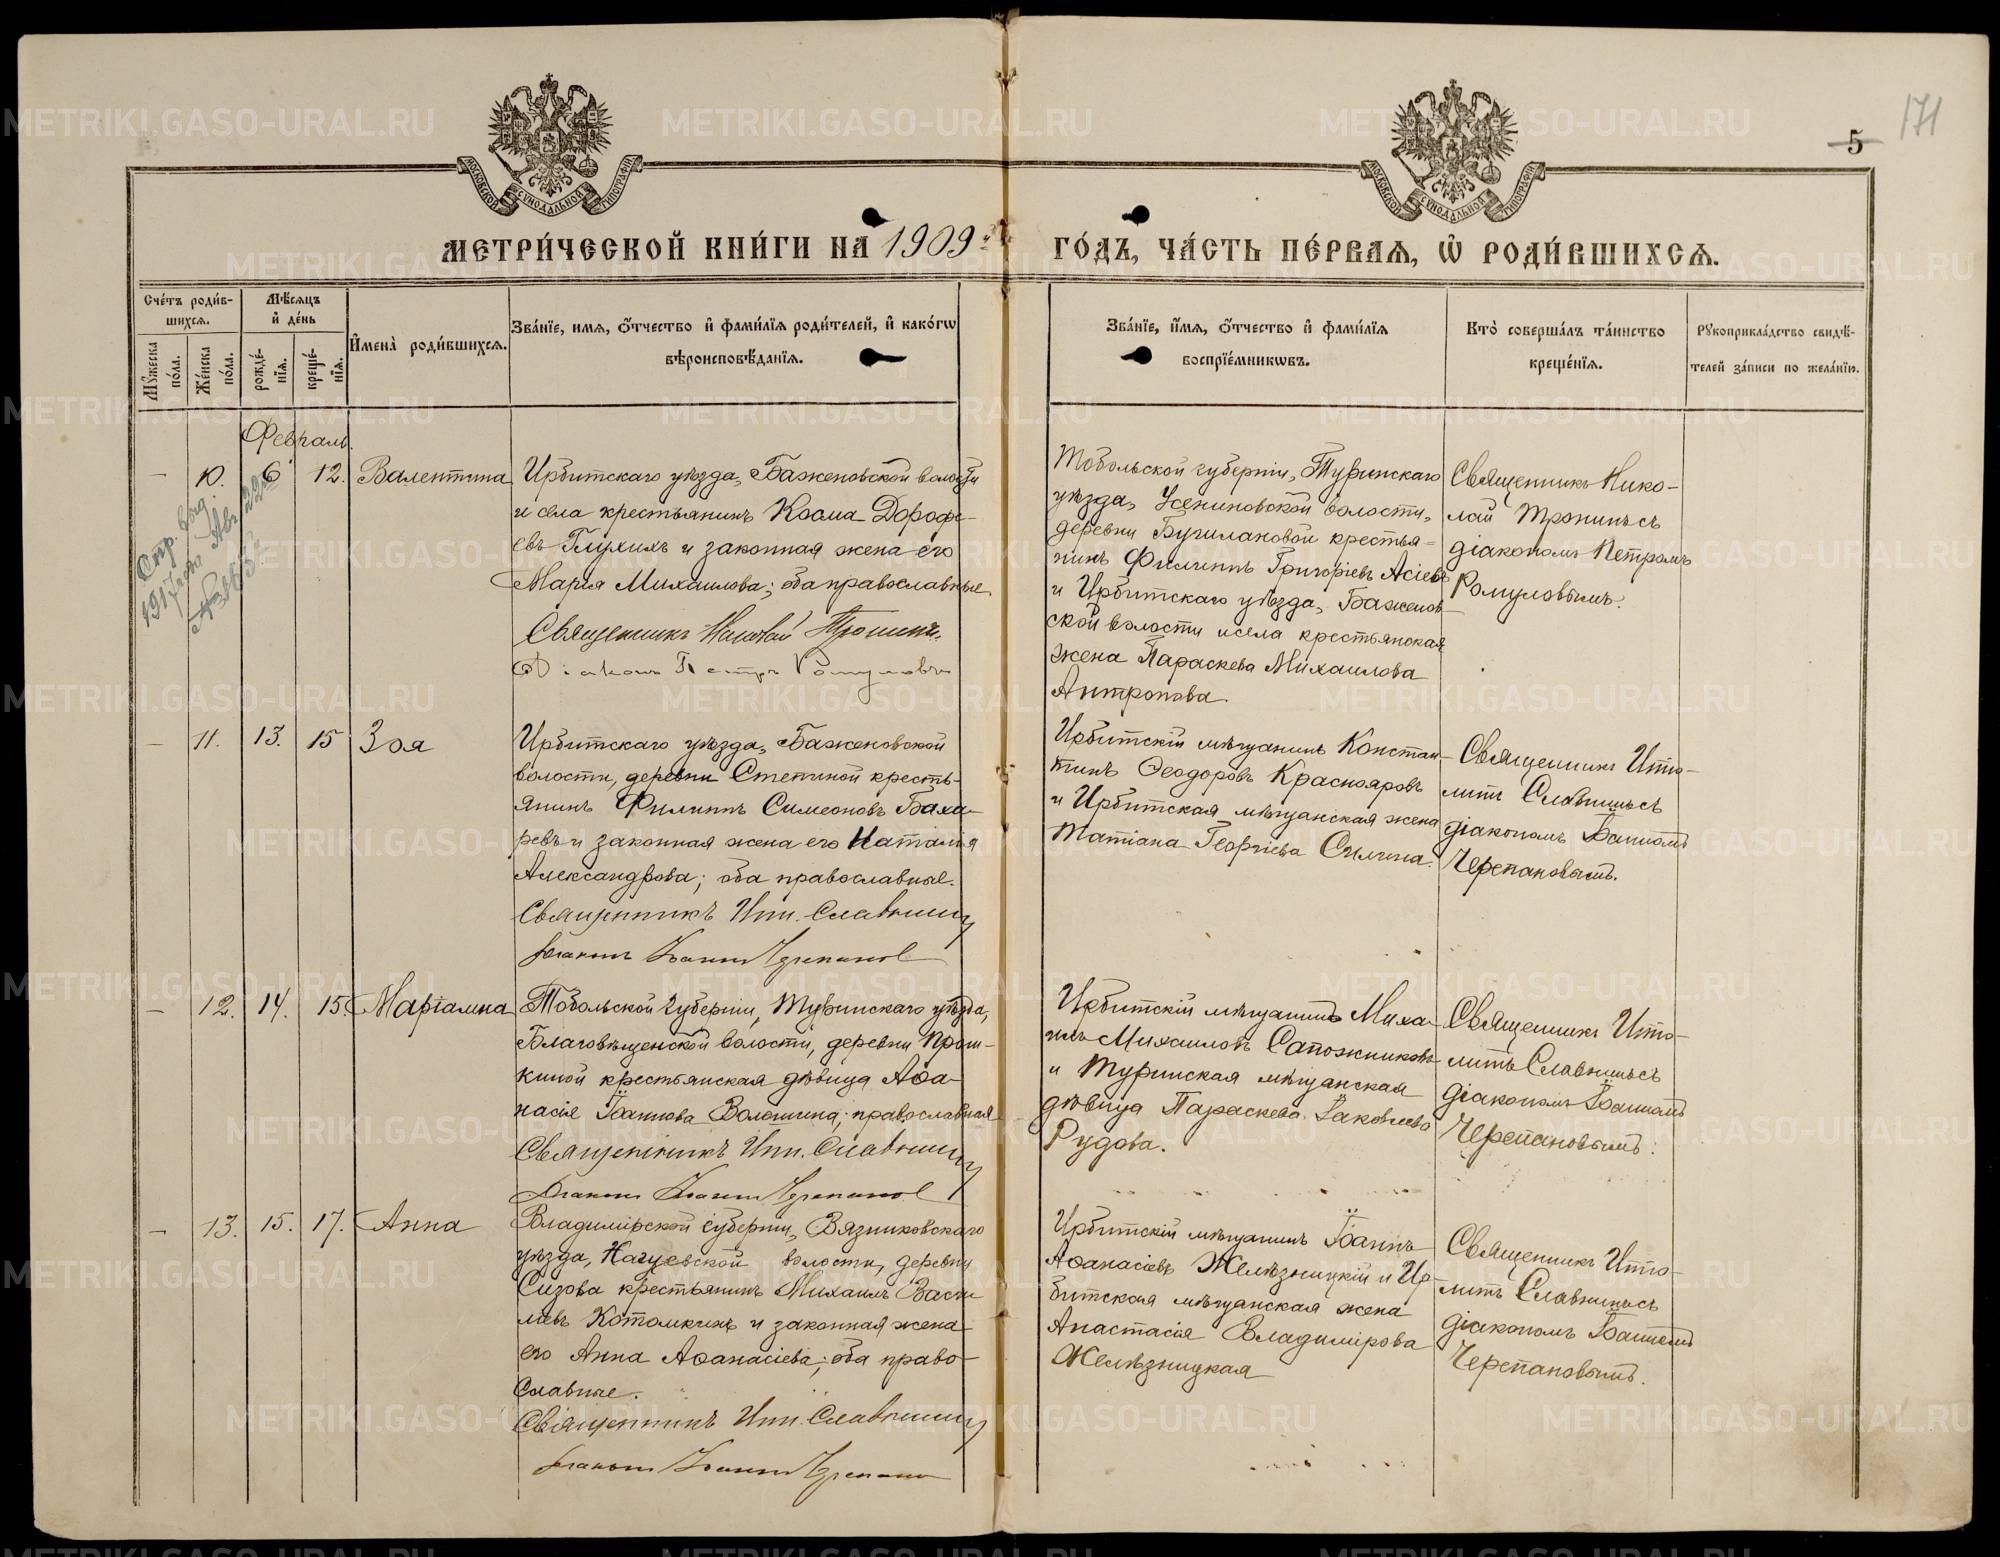 171
5
МОСКОВСКОЙ СѴНОДАЛЬНОЙ ТИПОГРАФІИ
МОСКОВСКОЙ СѴНОДАЛЬНОЙ ТИПОГРАФІИ
МЕТРИ́ЧЕСКОЙ КНИ́ГИ НА 1909й ГО́ДЪ, ЧА́СТЬ ПЕ́РВАѦ, Ѡ РОДИ́ВШИХСѦ.
Счётъ роди́в-
шихсѧ.
Мѣ́сѧцъ
и҆ де́нь
Мꙋ́жеска
по́ла.
Же́нска
по́ла.
рожде́-
нїѧ.
креще́-
нїѧ.
И҆мена̀ роди́вшихсѧ.
Зва́нїе, имѧ, ѻ҆́тчество и҆ фами́лїѧ роди́телей, и҆ како́гѡ
вѣроисповѣ́данїѧ.
Зва́нїе, и҆́мѧ, ѻ҆́тчество и҆ фами́лїѧ
воспрїе́мникѡвъ.
Кто̀ соверша́лъ та́инство
креще́нїѧ.
Рꙋкоприкла́дство свидѣ́-
телей за́писи по жела́нїю.
Февраль.
— 10. 6 12. Валентина
Стр. выд.
1917 года Авг 22
№
Ирбитскаго уѣзда, Баженовской волости
и села крестьянинъ Косма Дорофе-
евъ Глухихъ и законная жена его
Марія Михаилова; оба православные.
Священникъ Николай Тронинъ.
Діаконъ Петръ Ромуловъ
Тобольской губерніи, Туринскаго
уѣзда, Усениновской волости,
деревни Бучилановой крестья-
нинъ Филиппъ Григоріевъ Асіевъ
и Ирбитскаго уѣзда, Баженов-
ской волости и села крестьянская
жена Параскева Михаилова
Антропова.
Священникъ Нико-
лай Тронинъ съ
діакономъ Петромъ
Ромуловымъ.
— 11. 13. 15 Зоя
Ирбитскаго уѣзда, Баженовской
волости, деревни Степиной кресть-
янинъ Филиппъ Симеоновъ Баха-
ревъ и законная жена его Наталія
Александрова; оба православные.
Священникъ Ипп. Славнинъ
Діаконъ Іоаннъ Черепановъ
Ирбитскій мѣщанинъ Констан-
тинъ Ѳеодоровъ Краснояровъ
и Ирбитская мѣщанская жена
Татіана Георгіева Силина.
Священникъ Иппо-
литъ Славнинъ съ
діакономъ Іоанномъ
Черепановымъ.
— 12. 14. 15. Маріамна
Тобольской губерніи, Туринскаго уѣзда,
Благовѣщенской волости, деревни Прош-
киной крестьянская дѣвица Аѳа-
насія Іоаннова Волошина; православная
Священникъ Ипп. Славнинъ
Діаконъ Іоаннъ Черепановъ
Ирбитскій мѣщанинъ Миха-
илъ Михаиловъ Сапожниковъ
и Туринская мѣщанская
дѣвица Параскева Іаковлева
Рудова.
Священникъ Иппо-
литъ Славнинъ съ
діакономъ Іоанномъ
Черепановымъ.
— 13. 15. 17. Анна
Владимірской губерніи, Вязниковскаго
уѣзда, Нагуевской волости, деревни
Сизова крестьянинъ Михаилъ Васи-
льевъ Котомкинъ и законная жена
его Анна Аѳанасіева; оба право-
славные.
Священникъ Ипп. Славнинъ
Діаконъ Іоаннъ Черепановъ
Ирбитскій мѣщанинъ Іоаннъ
Аѳанасіевъ Желѣзницкій и Ир-
битская мѣщанская жена
Анастасія Владимірова
Желѣзницкая
Священникъ Иппо-
литъ Славнинъ съ
діакономъ Іоанномъ
Черепановымъ.
METRIKI.GASO-URAL.RU